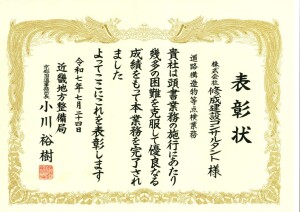 表彰状
株式会社修成建設コンサルタント様
道路構造物等点検業務
貴社は頭書業務の施行にあたり
幾多の困難を克服して優良なる
成績をもって本業務を完了され
ました
よってここにこれを表彰します
令和七年七月二十四日
近畿地方整備局
小川裕樹